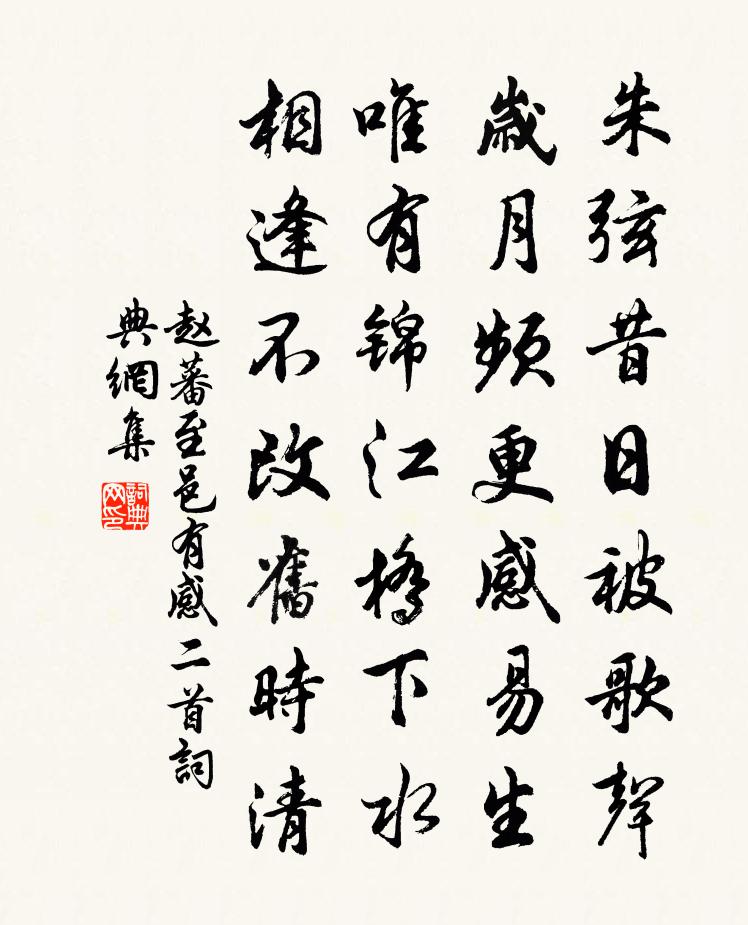 朱弦昔日被歌聲
歲月頻更感易生
唯有錦江橋下水
相逢不改舊時清
赵蕃至邑有感二首詞
典網集
詞典
网印